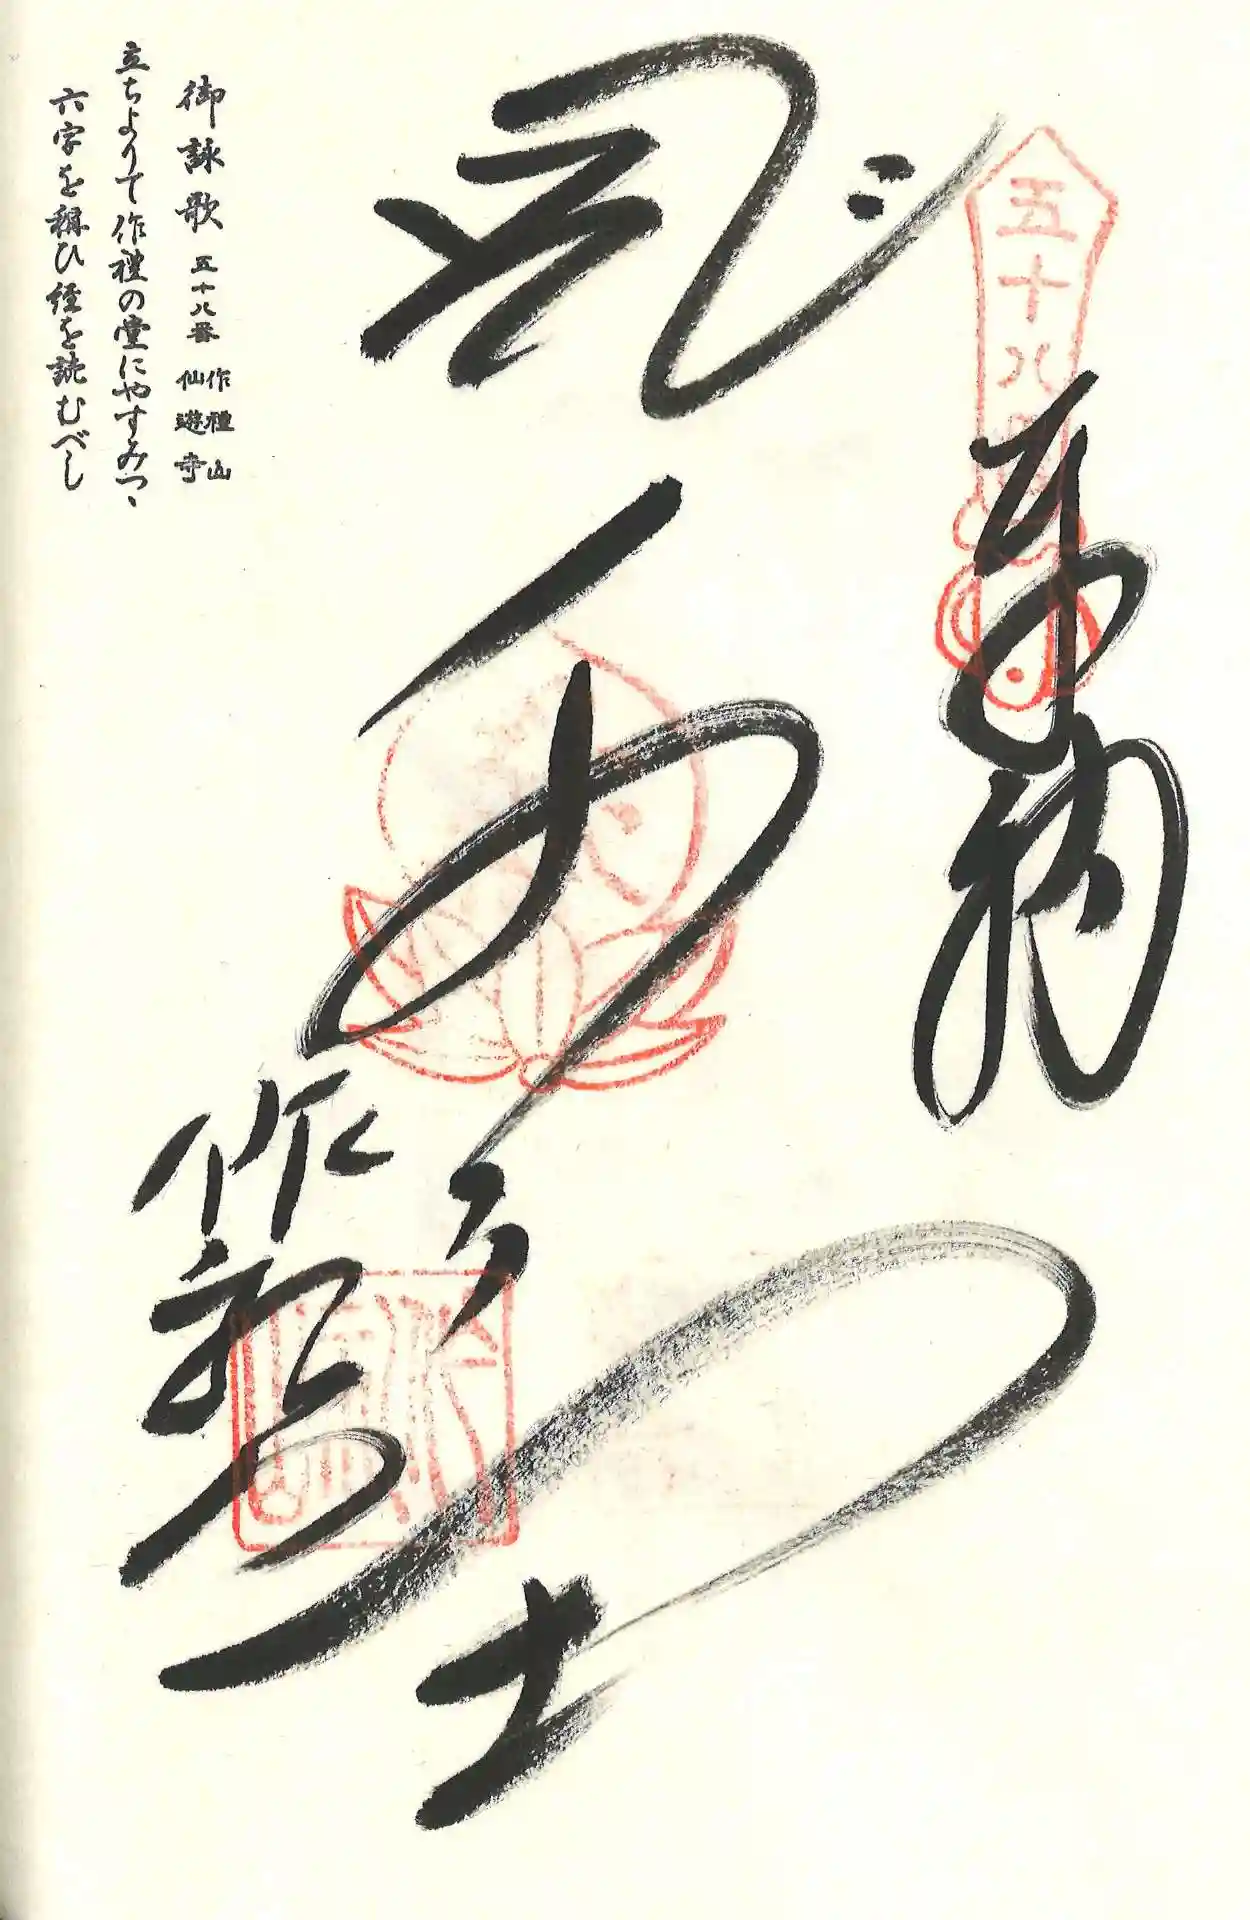 五十八番
奉納
大士
作礼山
御詠歌 五十八番 作禮山 仙遊寺
立ちよりて作禮の堂にやすみつゝ
六字を稱ひ経を読むべし